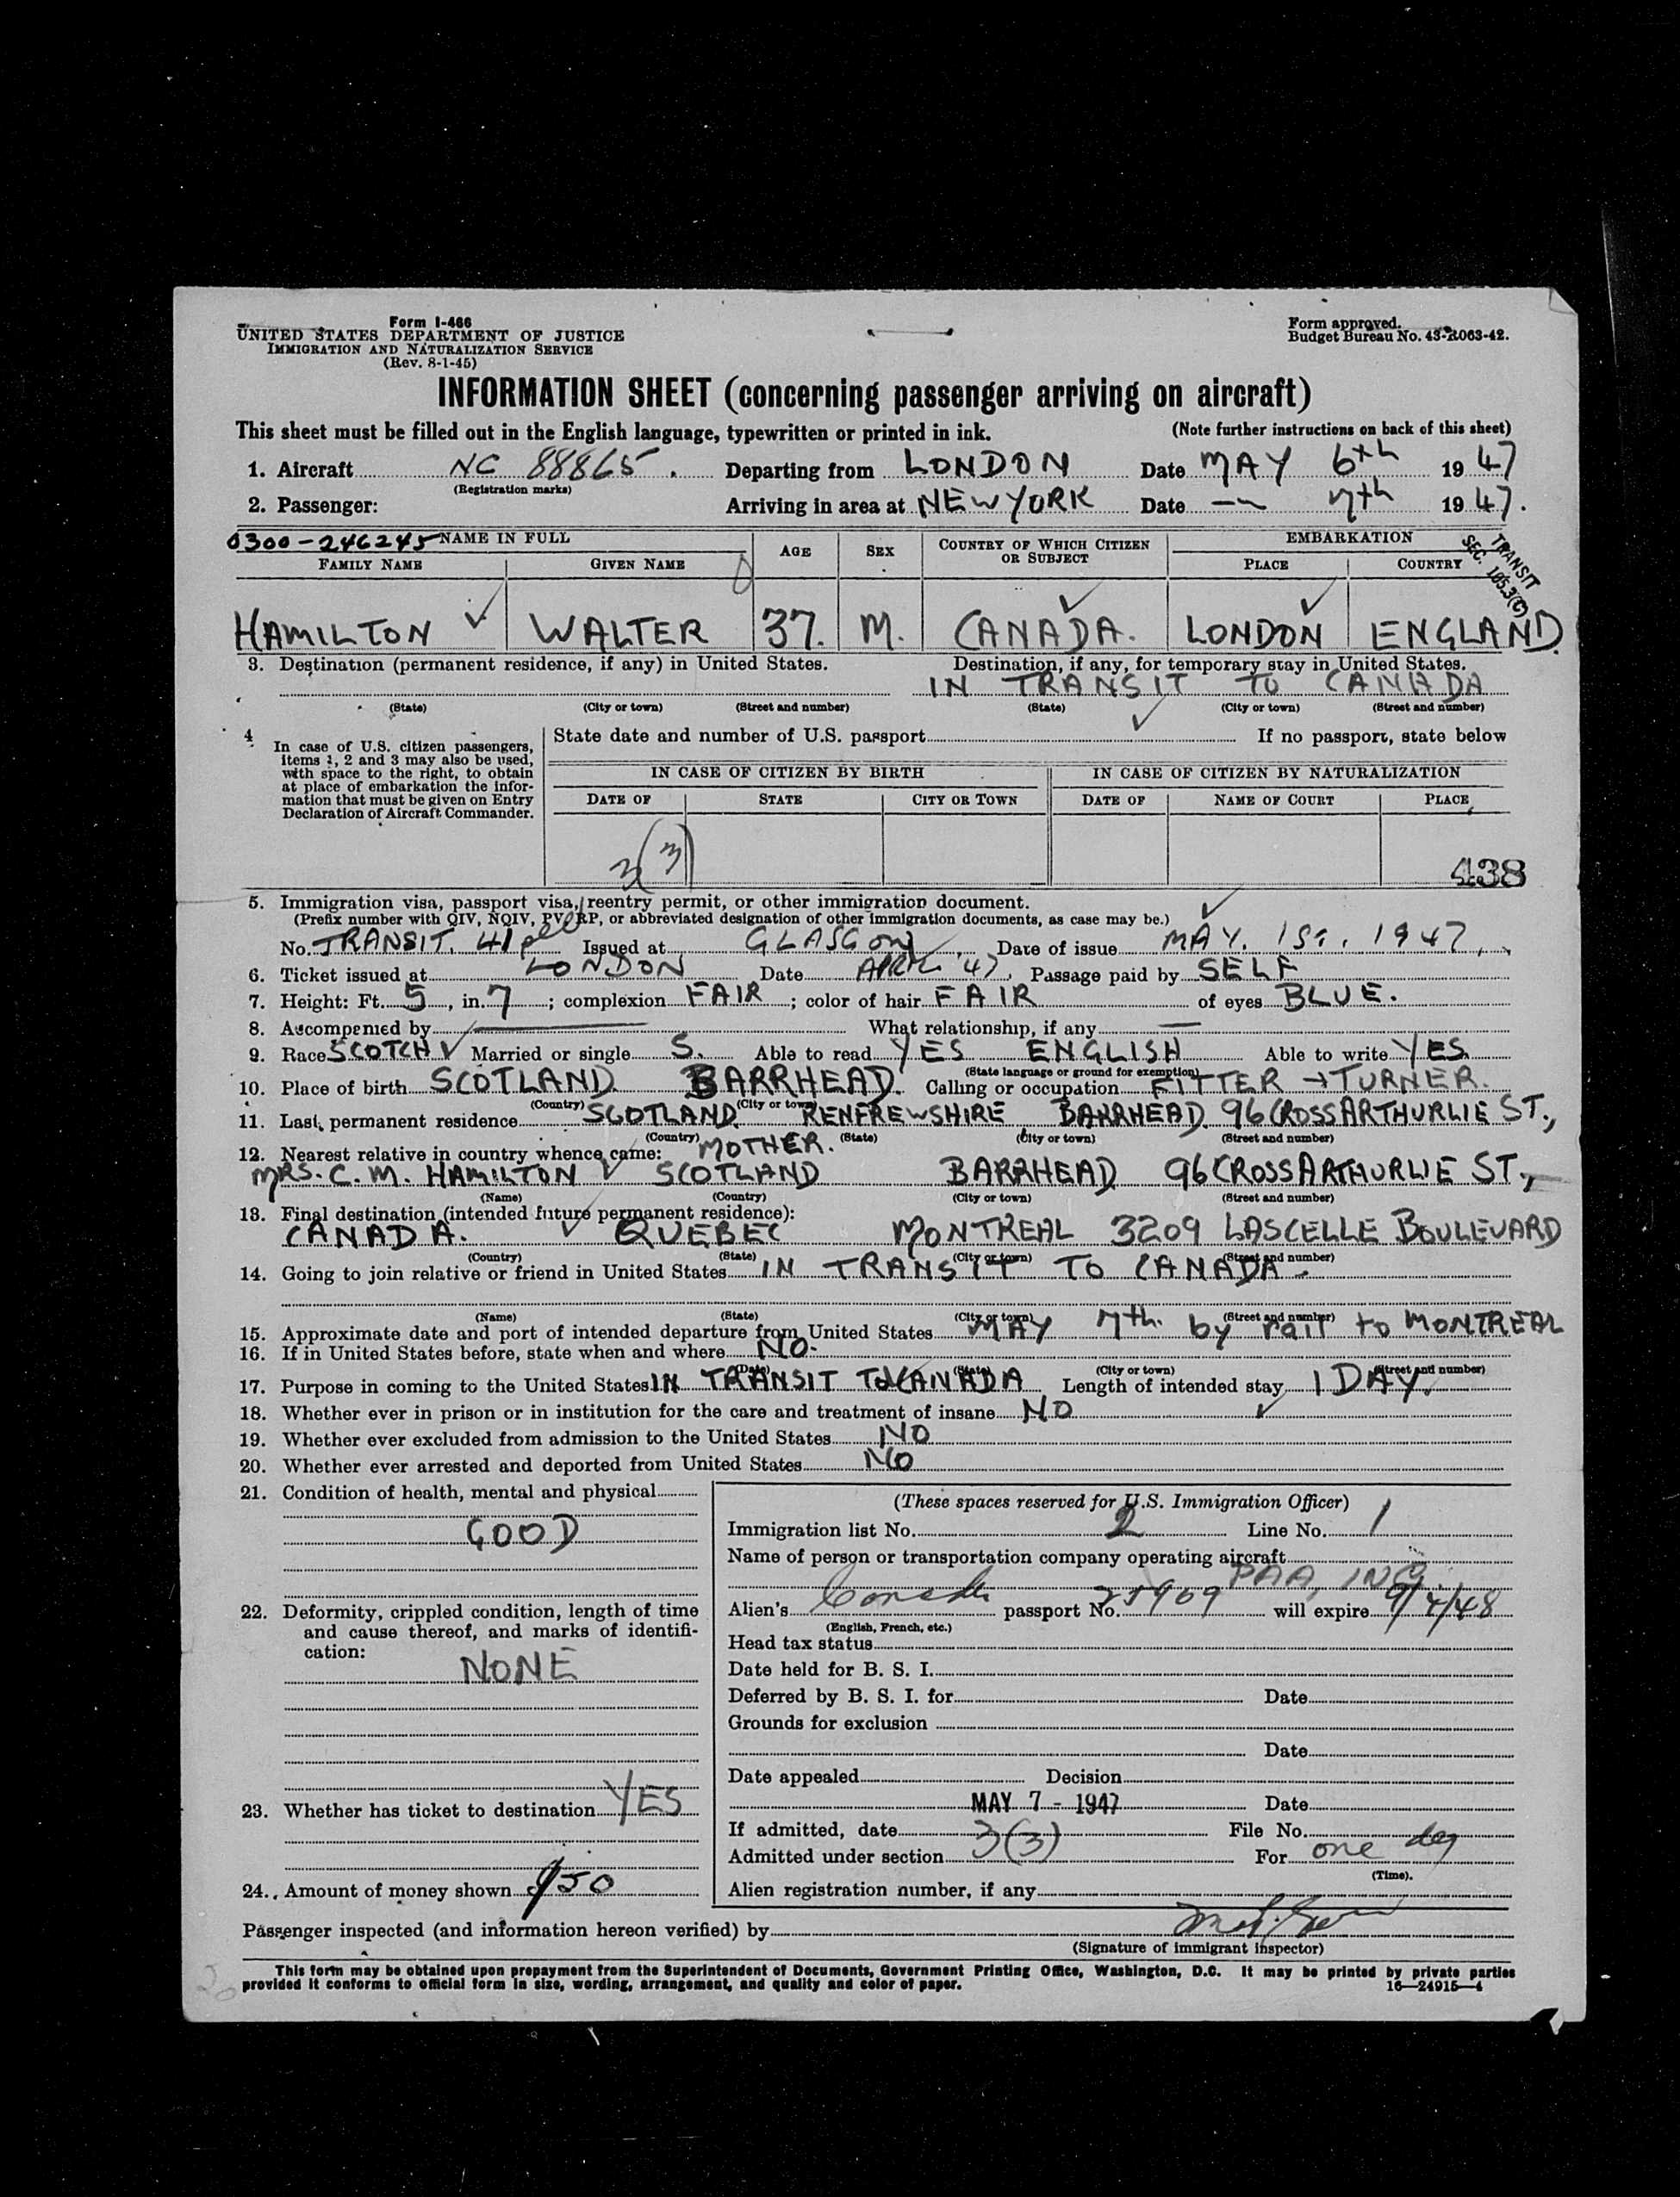 Form I-466
UNITED STATES DEPARTMENT OF JUSTICE
IMMIGRATION AND NATURALIZATION SERVICE
(Rev. 8-1-45)
Form approved.
Budget Bureau No. 43-R063-42.
INFORMATION SHEET (concerning passenger arriving on aircraft)
This sheet must be filled out in the English language, typewritten or printed in ink. (Note further instructions on back of this sheet)
1. Aircraft NC 88865. Departing from LONDON Date MAY 6th 1947
(Registration marks)
2. Passenger: Arriving in area at NEW YORK Date -- 7th 1947.
0300-246245 NAME IN FULL AGE SEX COUNTRY OF WHICH CITIZEN OR SUBJECT EMBARKATION
FAMILY NAME GIVEN NAME PLACE COUNTRY
TRANSIT
SEC. 105.3(C)
HAMILTON WALTER 37. M. CANADA. LONDON ENGLAND.
3. Destination (permanent residence, if any) in United States. Destination, if any, for temporary stay in United States.
IN TRANSIT TO CANADA
(State) (City or town) (Street and number) (State) (City or town) (Street and number)
4 In case of U.S. citizen passengers, items 1, 2 and 3 may also be used, with space to the right, to obtain at place of embarkation the information that must be given on Entry Declaration of Aircraft Commander.
State date and number of U.S. passport If no passport, state below
IN CASE OF CITIZEN BY BIRTH IN CASE OF CITIZEN BY NATURALIZATION
DATE OF STATE CITY OR TOWN DATE OF NAME OF COURT PLACE
3(3) 438
5. Immigration visa, passport visa, reentry permit, or other immigration document.
(Prefix number with QIV, NQIV, PV, RP, or abbreviated designation of other immigration documents, as case may be.)
No. TRANSIT. 41 Issued at GLASGOW Date of issue MAY. 1ST. 1947.
6. Ticket issued at LONDON Date APRIL '47. Passage paid by SELF
7. Height: Ft. 5, in. 7; complexion FAIR; color of hair FAIR of eyes BLUE.
8. Accompanied by What relationship, if any
9. Race SCOTCH Married or single S. Able to read YES ENGLISH Able to write YES.
(State language or ground for exemption)
10. Place of birth SCOTLAND. BARRHEAD. Calling or occupation FITTER → TURNER.
(Country) (City or town)
11. Last permanent residence SCOTLAND. RENFREWSHIRE BARRHEAD. 96 CROSSARTHURLIE ST.,
(Country) (State) (City or town) (Street and number)
12. Nearest relative in country whence came: MOTHER.
MRS. C. M. HAMILTON SCOTLAND BARRHEAD 96 CROSSARTHURLIE ST.,
(Name) (Country) (City or town) (Street and number)
13. Final destination (intended future permanent residence):
CANADA. QUEBEC MONTREAL 3209 LASCELLE BOULEVARD
(Country) (State) (City or town) (Street and number)
14. Going to join relative or friend in United States IN TRANSIT TO CANADA -
(Name) (State) (City or town) (Street and number)
15. Approximate date and port of intended departure from United States MAY 7th. by rail to MONTREAL
16. If in United States before, state when and where NO.
(Date) (State) (City or town) (Street and number)
17. Purpose in coming to the United States IN TRANSIT TO CANADA Length of intended stay 1 DAY.
18. Whether ever in prison or in institution for the care and treatment of insane NO
19. Whether ever excluded from admission to the United States NO
20. Whether ever arrested and deported from United States NO
21. Condition of health, mental and physical
GOOD
22. Deformity, crippled condition, length of time and cause thereof, and marks of identification:
NONE
23. Whether has ticket to destination YES
24. Amount of money shown $50
(These spaces reserved for U.S. Immigration Officer)
Immigration list No. 2 Line No. 1
Name of person or transportation company operating aircraft
PAA, INC.
Alien's passport No. 25909 will expire 9/4/48
(English, French, etc.)
Head tax status
Date held for B. S. I.
Deferred by B. S. I. for Date
Grounds for exclusion
Date
Date appealed Decision
MAY 7 - 1947 Date
If admitted, date File No.
Admitted under section 3(3) For one day
(Time).
Alien registration number, if any
Passenger inspected (and information hereon verified) by
(Signature of immigrant inspector)
This form may be obtained upon prepayment from the Superintendent of Documents, Government Printing Office, Washington, D.C. It may be printed by private parties
provided it conforms to official form in size, wording, arrangement, and quality and color of paper. 16—24915-4